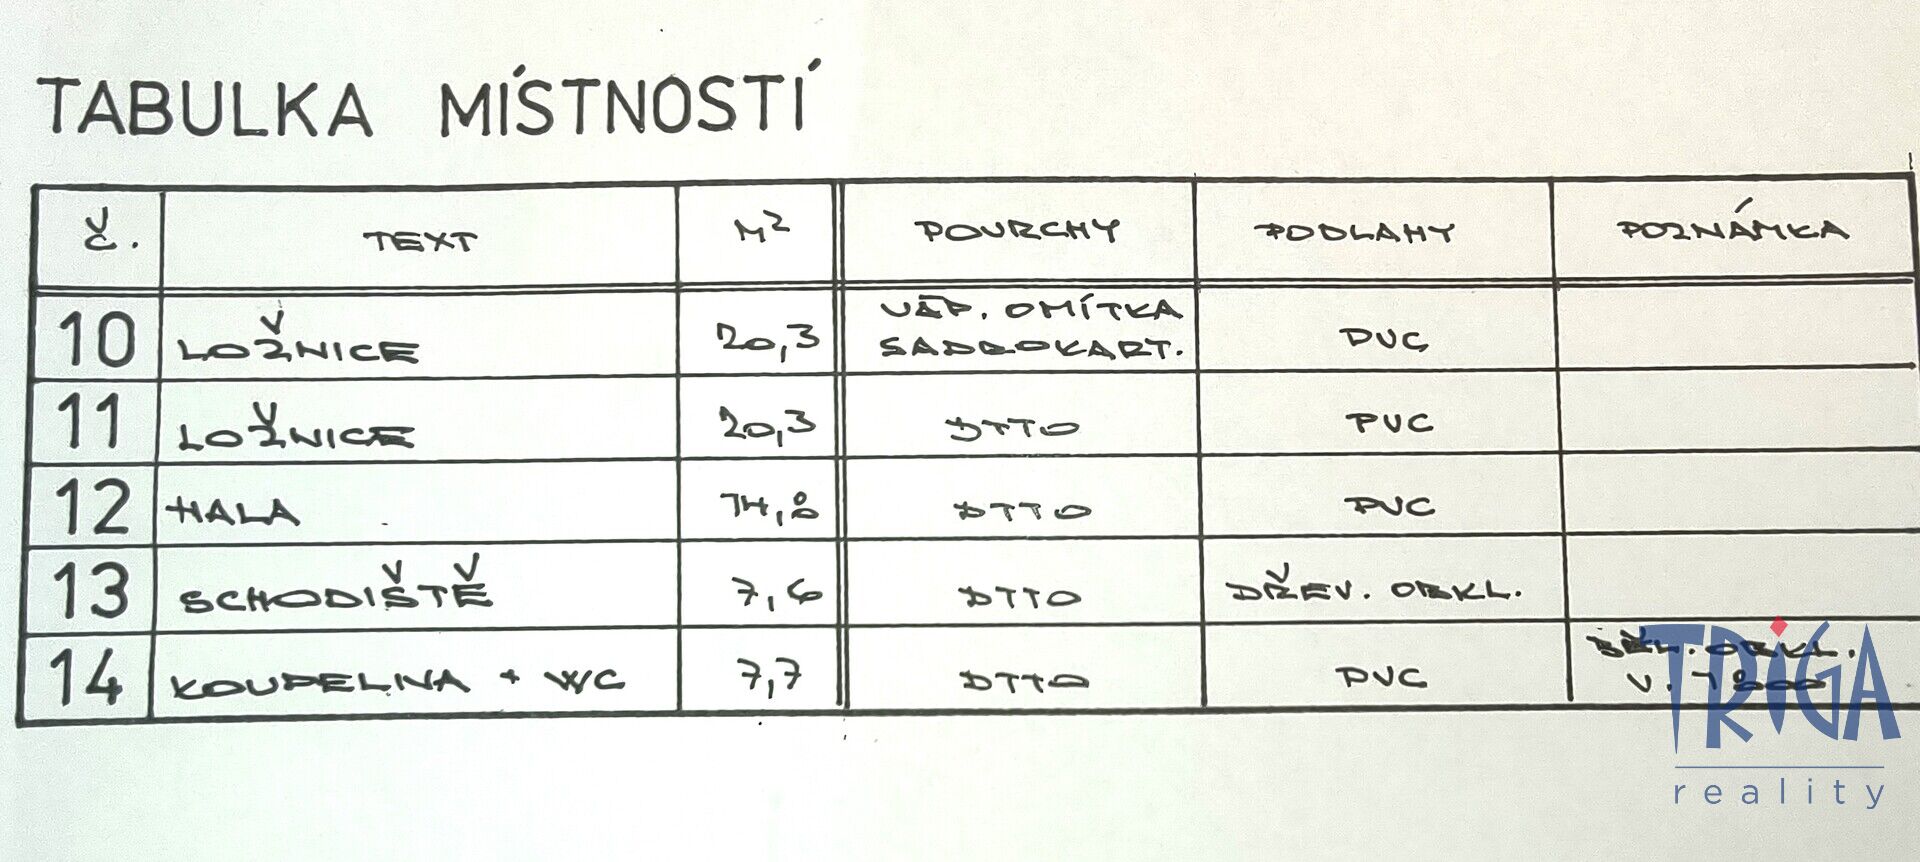 TABULKA MÍSTNOSTÍ
Č. TEXT M² POVRCHY PODLAHY POZNÁMKA
10 LOŽNICE 20,3 VÁP. OMÍTKA SÁDROKART. PVC
11 LOŽNICE 20,3 DTTO PVC
12 HALA 14,8 DTTO PVC
13 SCHODIŠTĚ 7,6 DTTO DŘEV. OBKL.
14 KOUPELNA + WC 7,7 DTTO PVC OBKL. V. 1800
TRIGA
reality